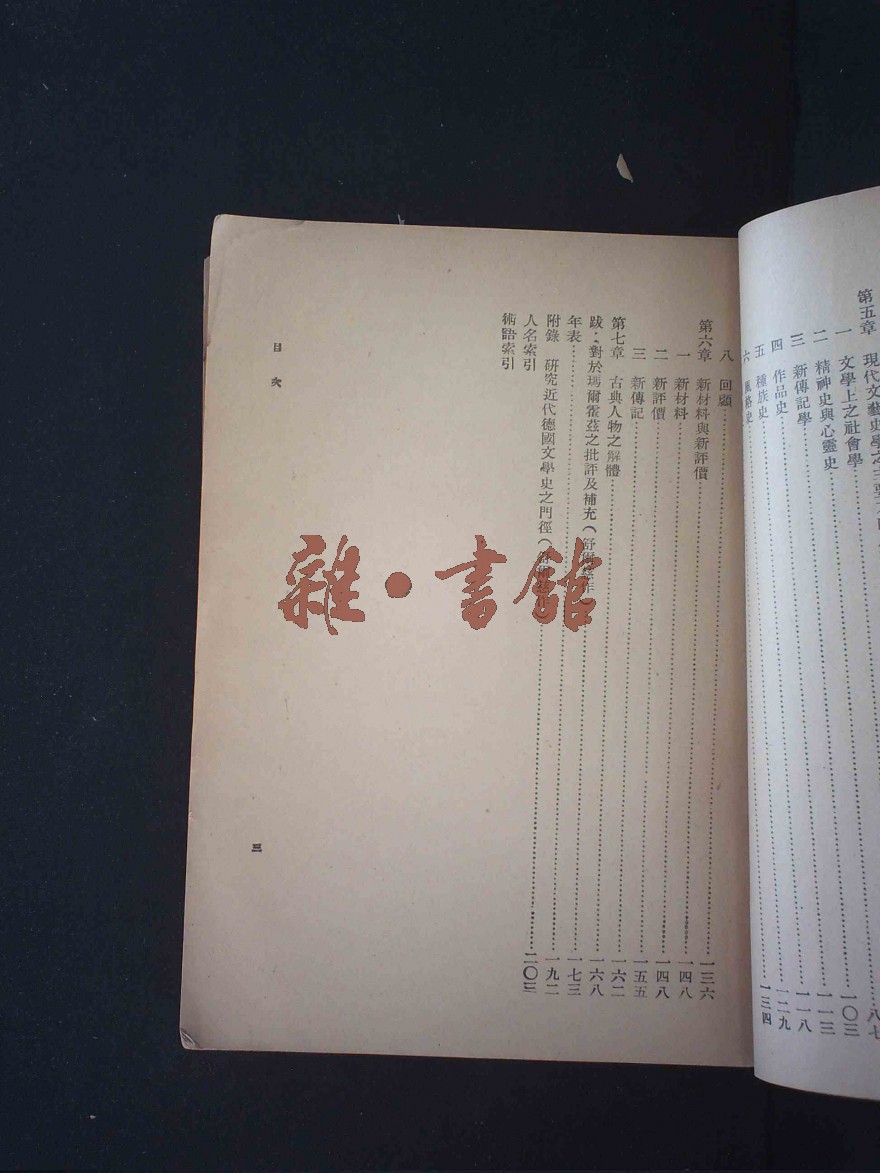 第五章 現代文藝史學之主要
一 文學上之社會學……一〇三
二 精神史與心靈史……一一三
三 新傳記學……一一八
四 作品史……一二九
五 種族史……一三四
六 風格史……
八 回顧……一三六
第六章 新材料與新評價……一四八
一 新材料……一四八
二 新評價……一五五
三 新傳記……一六二
第七章 古典人物之解體……一六八
跋:對於瑪爾霍茲之批評及補充(舒爾慈作)……一七三
年表……一九二
附錄 研究近代德國文學史之門徑(舒爾慈作)……二〇三
人名索引
術語索引
目次
三
雜·書館